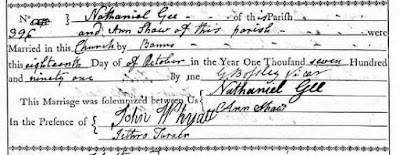 No Nathaniel Gee - of this Parish
396 and Ann Shaw of this parish - were
Married in this Church by Banns
this eighteenth Day of October in the Year One Thousand seven Hundred
and ninety one By me G Bossley Vicar
This Marriage was solemnized between Us { Nathaniel Gee
Ann Shaw
In the Presence of { John Whyatt
Jethro Turner